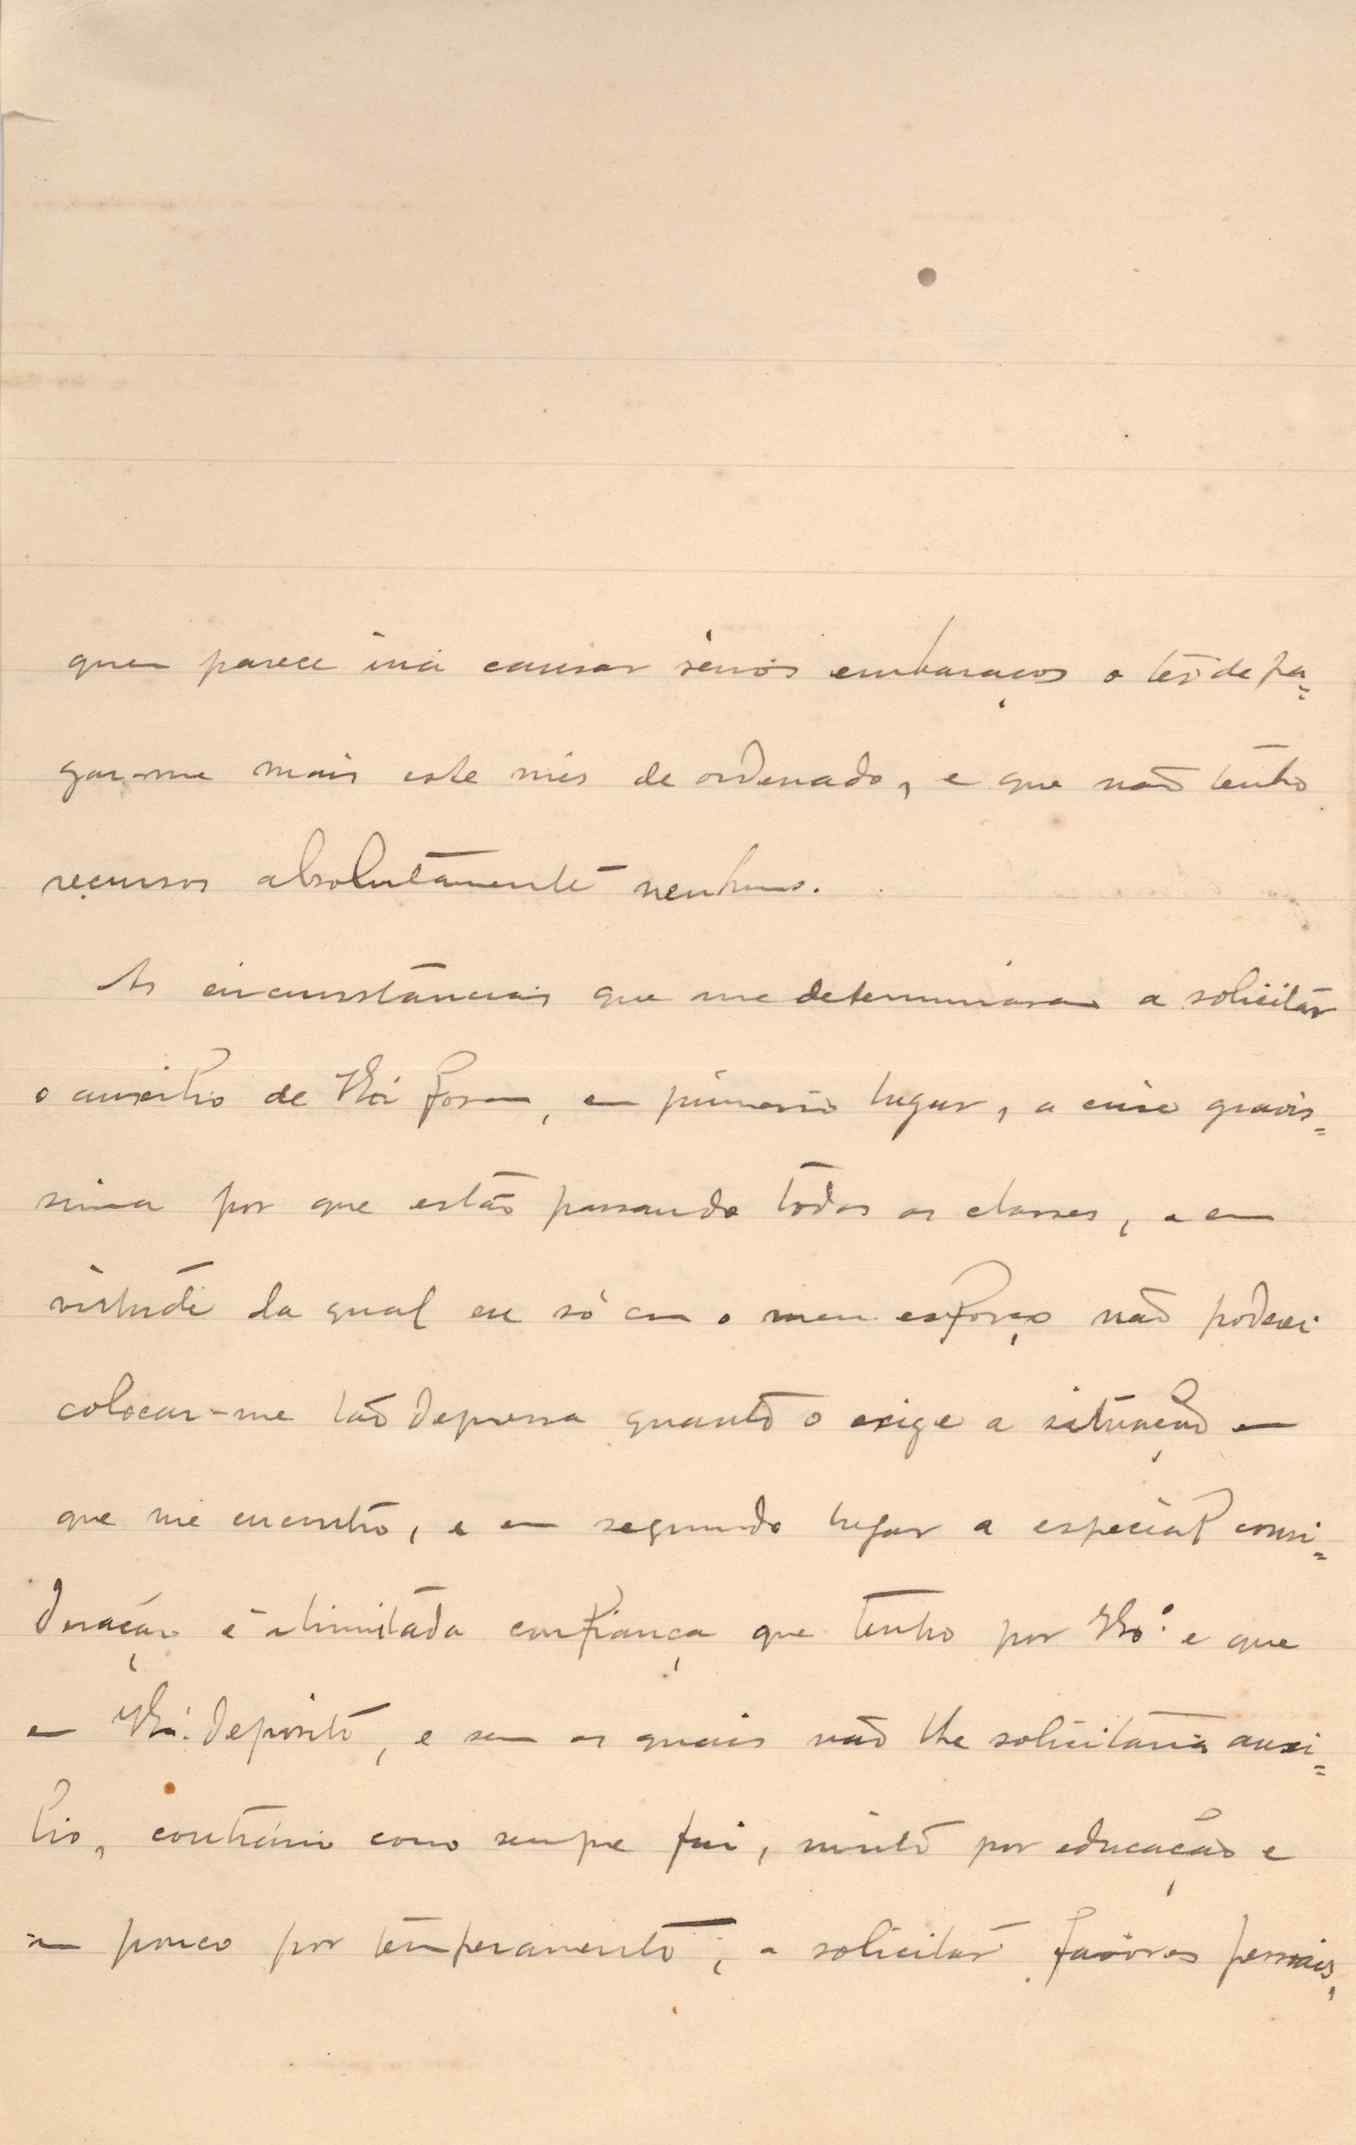 quem parece iria causar sérios embaraços o ter de pa=
gar-me mais este mês de ordenado, e que não tenho
recursos absolutamente nenhuns.
As circunstâncias que me determinaram a solicitar
o auxilio de foram, em primeiro lugar, a crise gravis=
sima por que estão passando todas as classes, e em
virtude da qual eu só com o meu esforço não poderei
colocar-me tão depressa quanto o exige a situação em
que me encontro, e em segundo lugar a especial consi=
deração e ilimitada confiança que tenho por e que
em deposito, e sem as quais não lhe solicitaria auxi=
lio, contrário como sempre fui, muito por educação e
um pouco por temperamento, a solicitar favores pessoais,